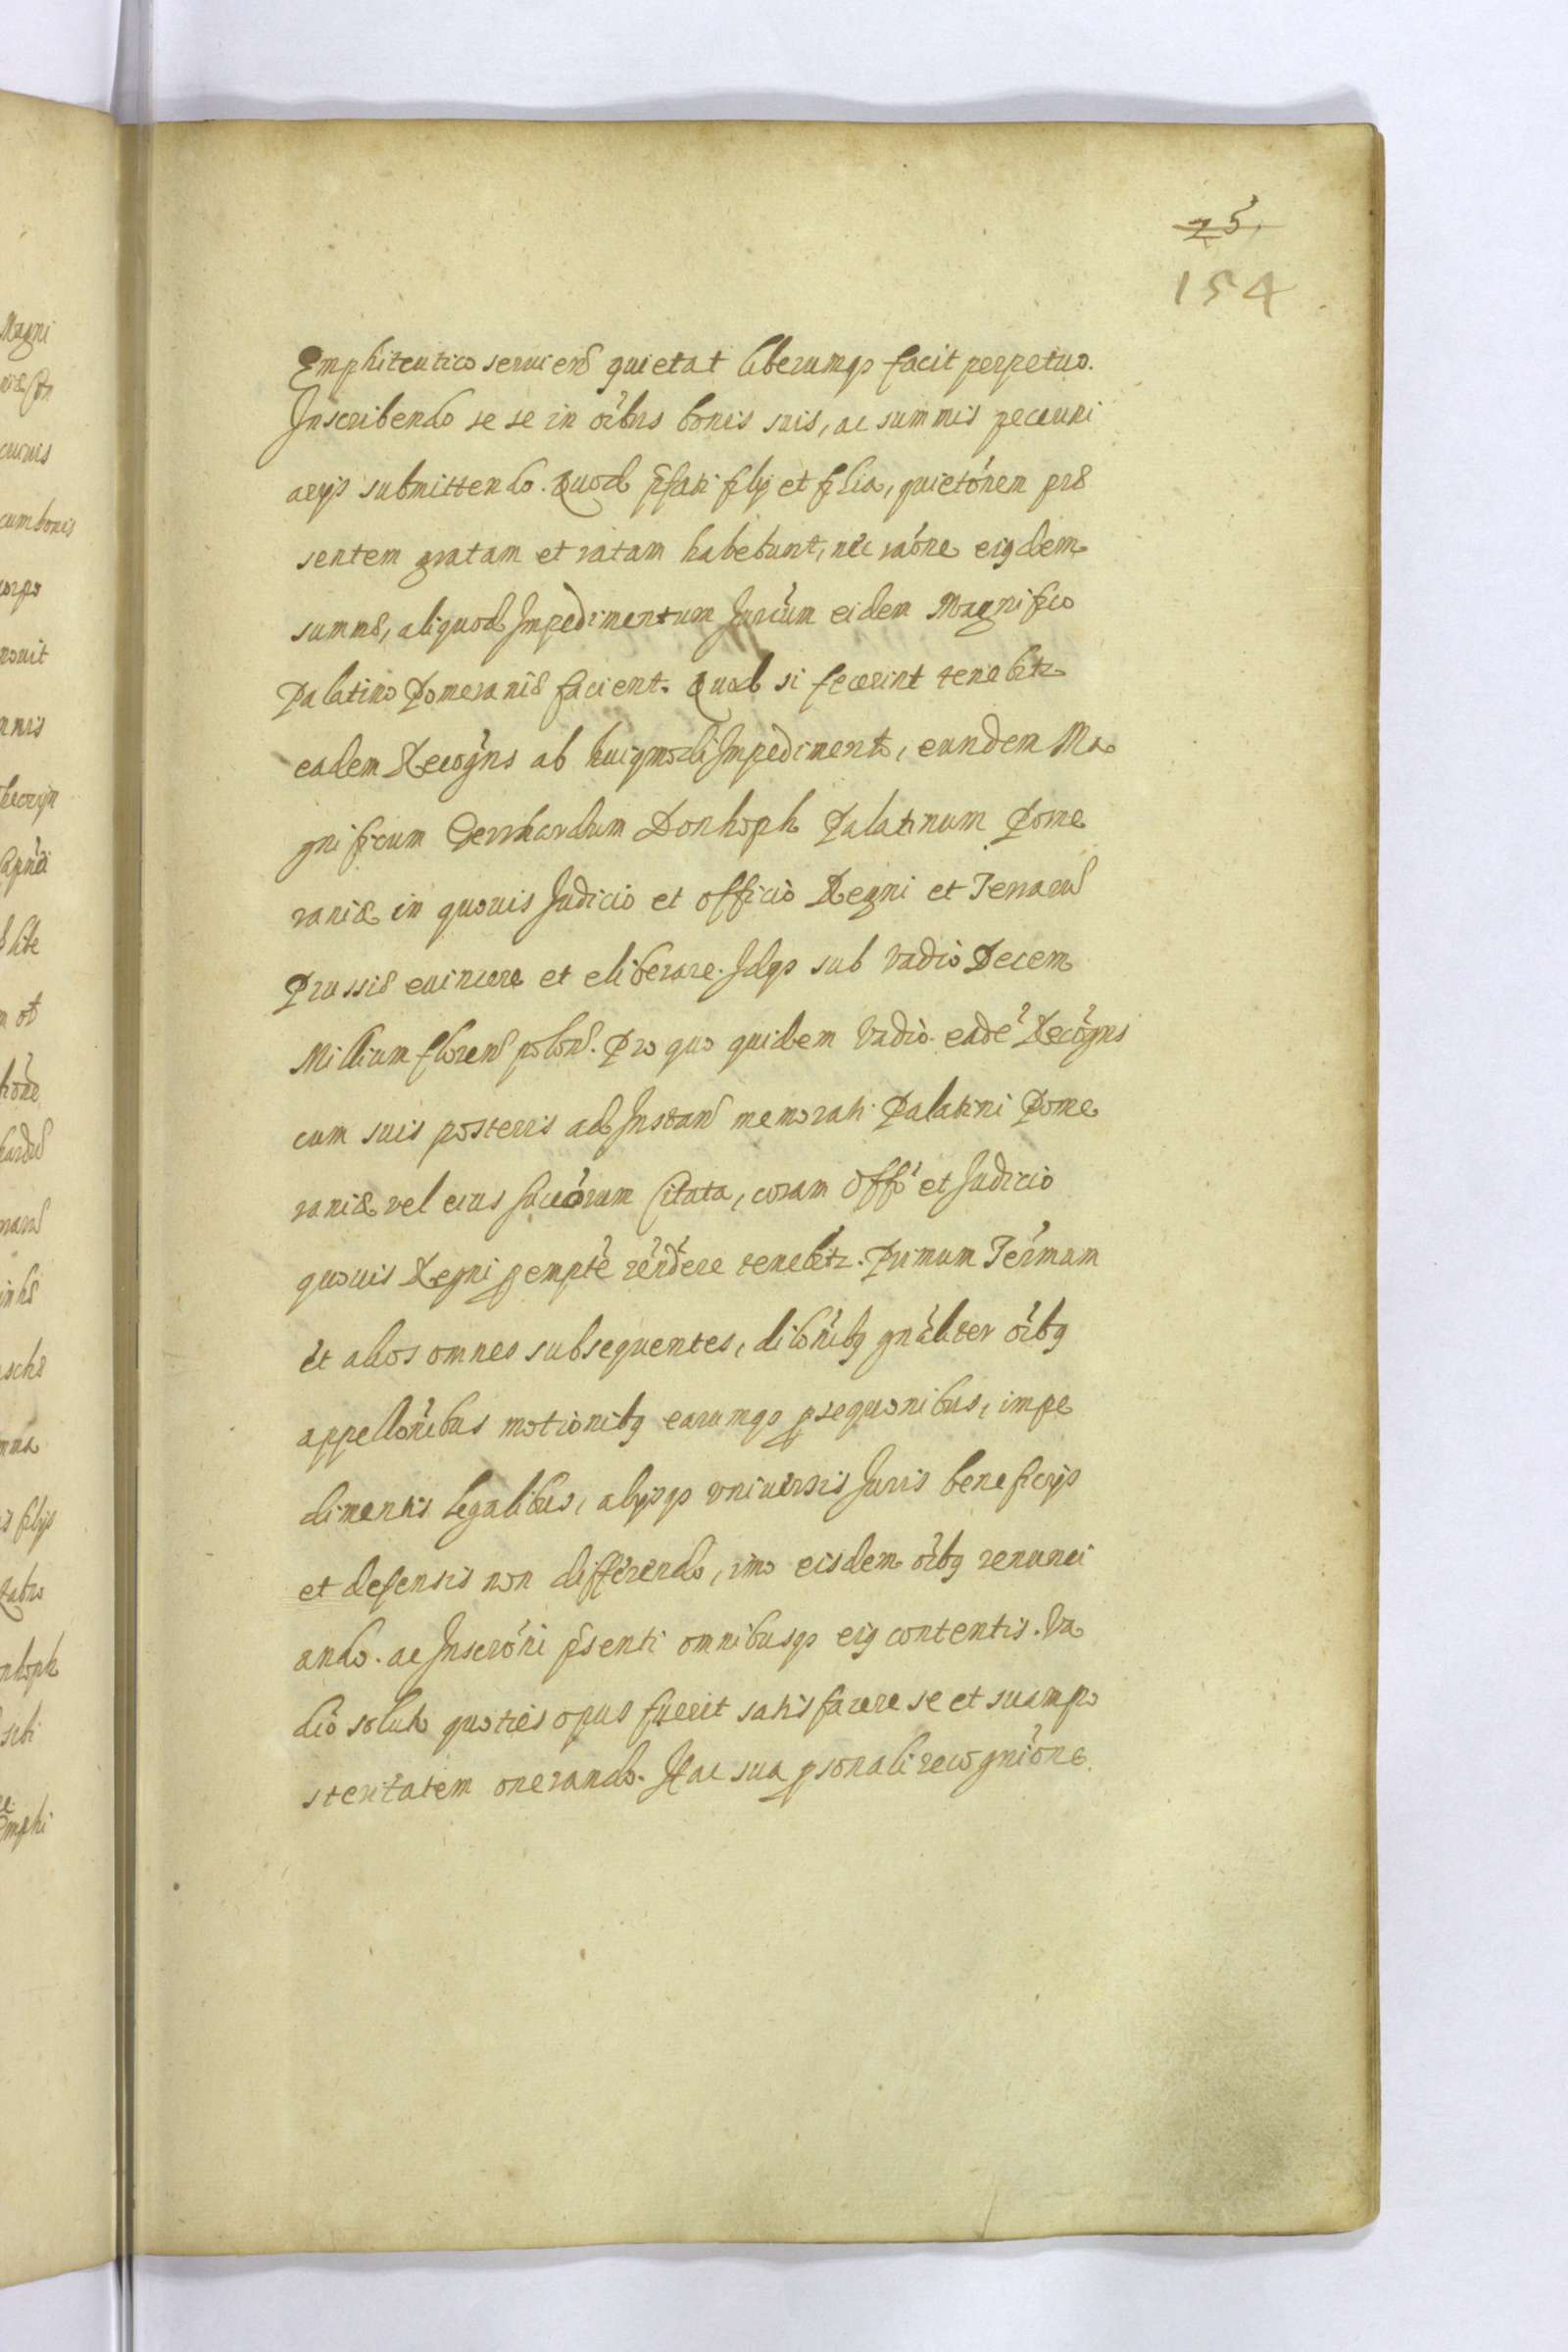 25
154
Emphiteutico seruien quietat liberumq facit perpetuo.
Inscribendo se se in oibus bonis suis, ac summis pecuni
arijs submittendo. Quod pfati filij et filia, quietonem præ
sentem gratam et ratam habebunt, nec raone eiusdem
summæ, aliquod Impedimentum Juricum eidem Magnifico
Palatino Pomeraniæ facient. Quod si fecerint tenebitr
eadem Recogns ab huiusmodi Impedimento, eundem Ma
gnificum Gerrhardum Donhoph Palatinum Pome
raniæ in quouis Judicio et officio Regni et Terrarum
Prussiæ euincere et eliberare. Idq sub Vadio Decem
Millium floren polon. Pro quo quidem Vadio eade Recogns
cum suis posteris ad Instan memorati Palatini Pome
raniæ vel eius succorum Citata, coram Offo et Judicio
quouis Regni pempte rendere tenebitr. Primum Termum
et alios omnes subsequentes, dilonibq gnaliter oibq
appellonibus motionibq earumq psequonibus, impe
dimentis legalibus, alijsq vniuersis Juris beneficijs
et defensis non differendo, imo eisdem oibq renunci
ando. ac Inscroni psenti omnibusq eiq contentis. Va
dio soluto quoties opus fuerit satisfacere se et suam po
steritatem onerando. Hac sua psonali recognione
Magni
cumbonis
nouit
Emphi